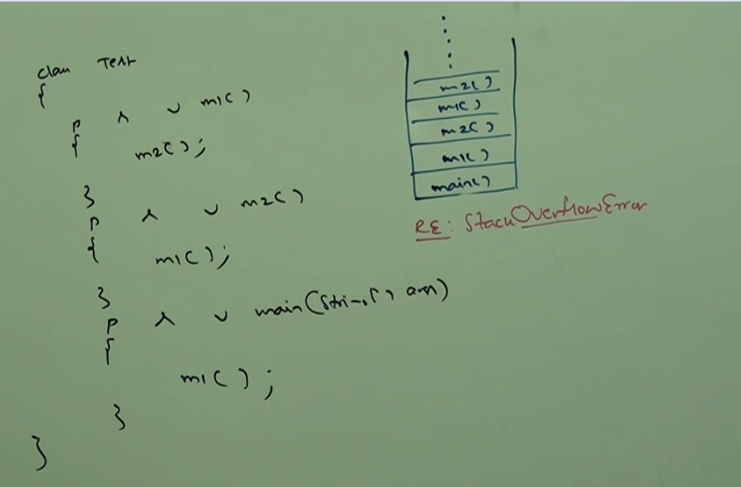 class Test
{
p s v m1()
{
m2();
}
p s v m2()
{
m1();
}
p s v main(String[] args)
{
m1();
}
}
m2()
m1()
m2()
m1()
main()
RE: StackOverflowError